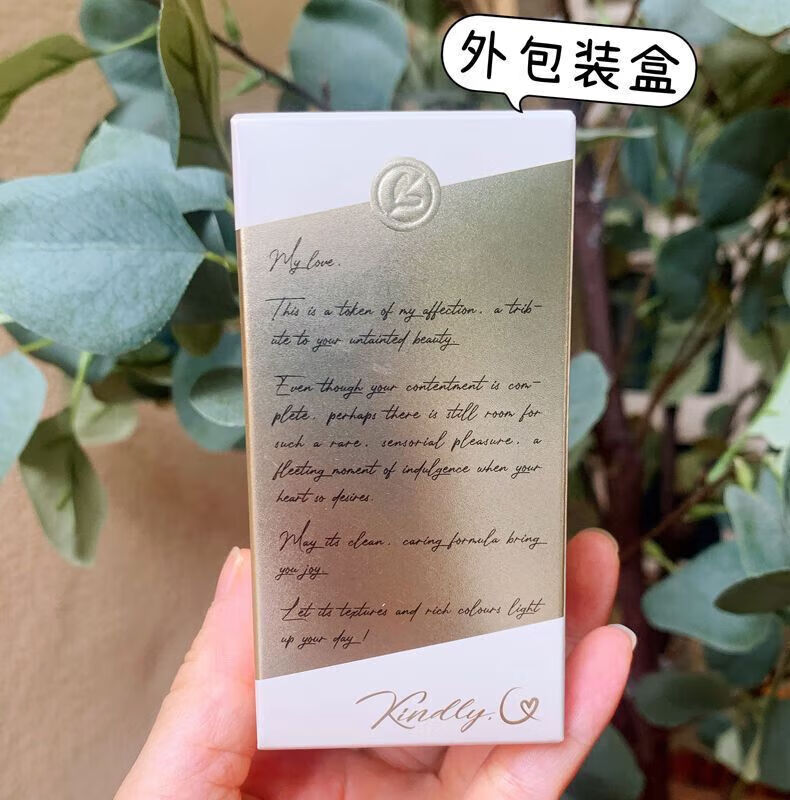 外包装盒
My love,
This is a token of my affection, a trib-
ute to your untainted beauty.
Even though your contentment is com-
plete, perhaps there is still room for
such a rare, sensorial pleasure, a
fleeting moment of indulgence when your
heart so desires.
May its clean, caring formula bring
you joy.
Let its textures and rich colours light
up your day!
Kindly,